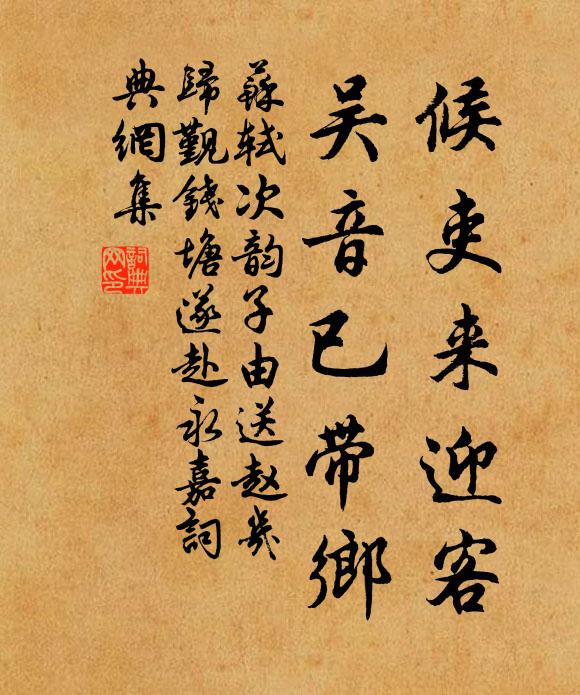 候吏来迎客
吴音已带鄉
蘇轼次韵子由送赵㞦
歸觐錢塘遂赴永嘉詞
典網集
詞典网印